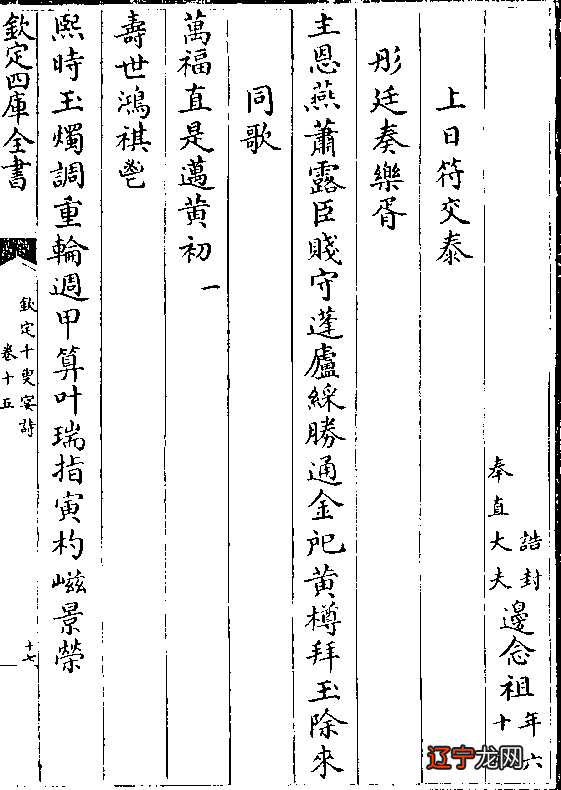 誥封
奉直大夫
邊念祖
年六
十
上日符交泰
彤廷奏樂胥
主恩燕蕭露臣賤守蓬廬綵勝通金戺黄樽拜玉除來
同歌
萬福直是邁黄初
壽世鴻祺鬯
熙時玉燭調重輪週甲算叶瑞指寅杓嵫景榮
欽定四庫全書
欽定千叟宴詩
卷十五
十七
辽宁龙网